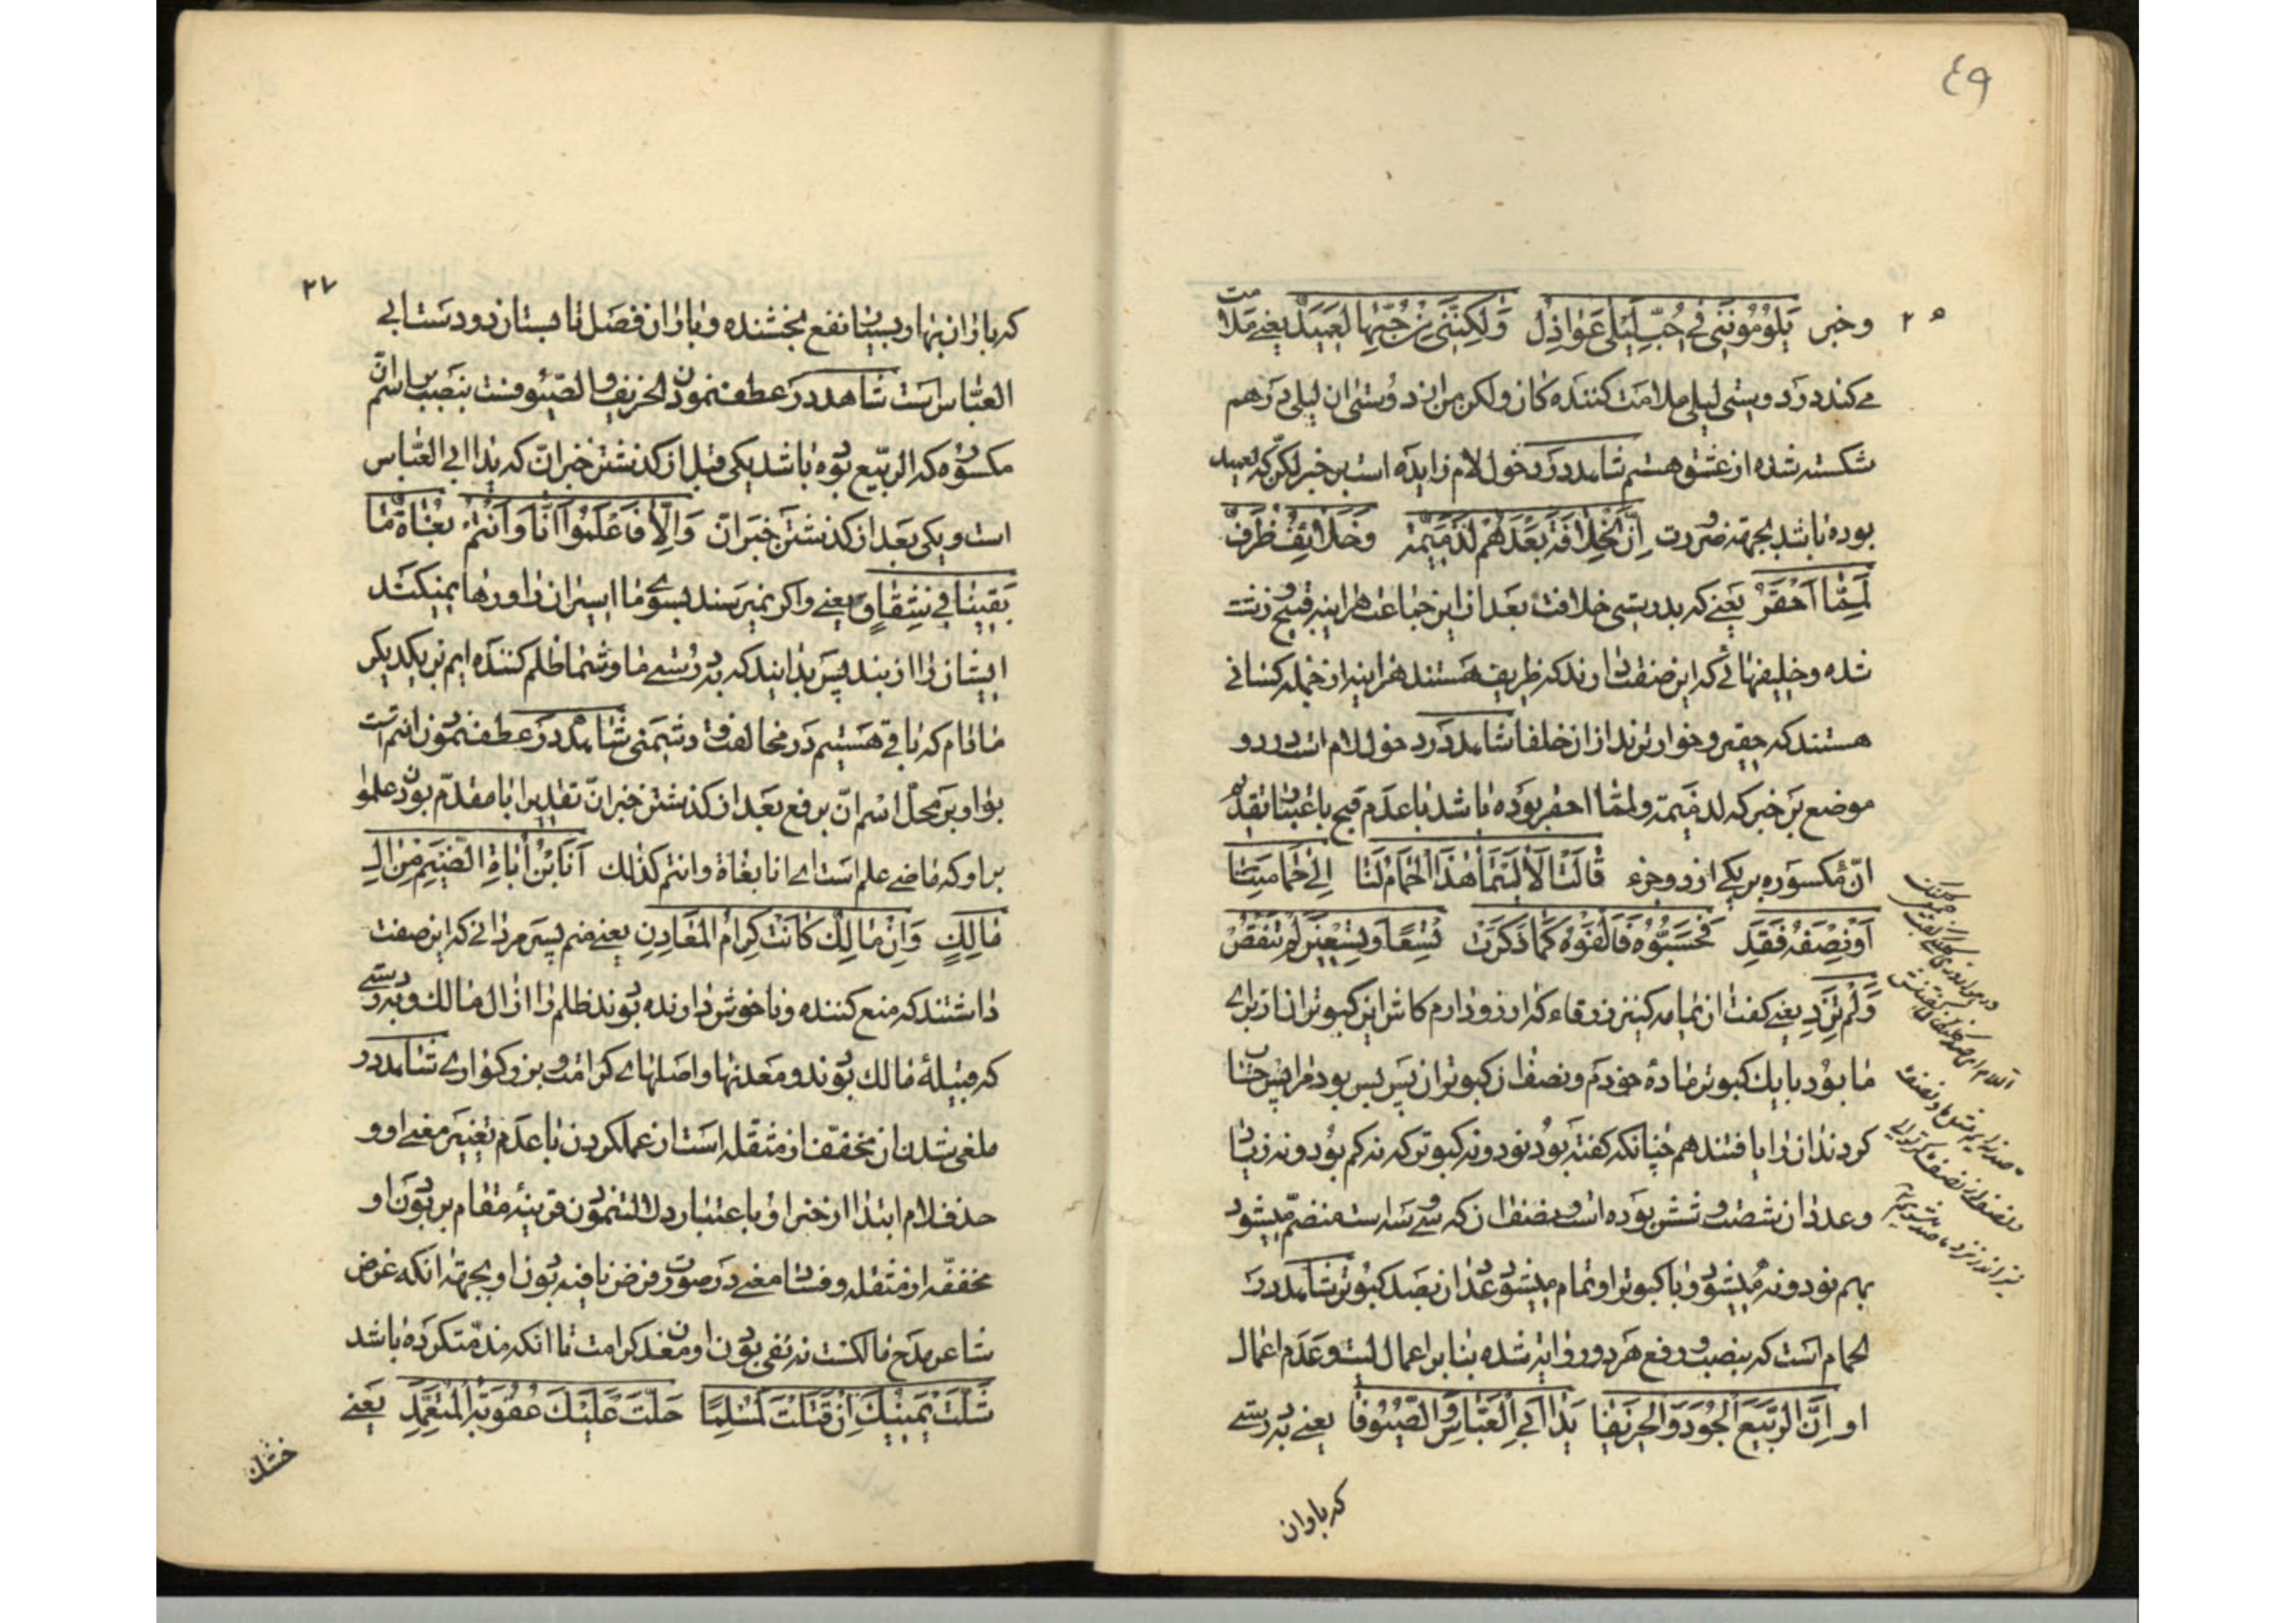 ٤٩
وخبر يَلُومُونَنی فی حُبِّ لَیْلی عَواذِلُ وَلکِنَّنی مِنْ حُبِّها لَعَمیدُ یعنی ملامت
می کنند در دوستی لیلی ملامت کننده کان ولکن من از دوستی ان لیلی درهم
شکسته شده از عشق هستم شاهد در دخول لام زایده است بر خبر لکن که لعمید
بوده باشد بجهة ضرورت اِنَّ الْخِلافَةَ بَعْدَهُمْ لَذَمیمَةٌ وَخَلائِفٌ ظُرُفٌ
لَمِمّا اَحْقَرُ یعنی که بدرستی خلافت بعد از این جماعت هراینه قبیح و زشت
شده و خلیفهائی که این صفت دارند که ظریف هستند هراینه از جمله کسانی
هستند که حقیر و خوارترند از ان خلفا شاهد در دخول لام است در دو
موضع بر خبر که لذمیمة ولمما احقر بوده باشد با عدم قبح باعتبار تقدم
انّ مکسوره بر یکی از دو جزء قالَتْ اَلا لَیْتَما هذَا الْحَمامُ لَنا اِلی حَمامَتِنا
اَوْ نِصْفُهُ فَقَدِ فَحَسَّبُوهُ فَاَلْفَوْهُ کَما ذَکَرَتْ تِسْعًا وَتِسْعینَ لَمْ تَنْقُصْ
وَلَمْ تَزِدِ یعنی گفت ان یمامه کنیز زرقاء که ارزو دارم کاش این کبوتران از برای
ما بود با یک کبوتر ماده خودم و نصف ان کبوتران پس بس بود مرا پس حساب
کردند ان را یافتند هم چنانکه گفته بود نود و نه کبوتر که نه کم بود و نه زیاد
و عدد ان شصت و شش بوده است و نصف ان که سی و سه است منضم میشود
بهم نود و نه میشود و با کبوتر او تمام میشود عدد ان بصد کبوتر شاهد در
الحمام است که بنصب و رفع هر دو روایة شده بنا بر اعمال لیت و عدم اعمال
او اِنَّ الرَّبیعَ الْجُودَ وَالْخَریفا یَدا اَبِی الْعَبّاسِ وَالصُّیُوفا یعنی بدرستی
که باران
٢٧
که باران بهار بسیار نفع بخشنده و باران فصل تابستان دو دست ابی
العباس است شاهد در عطف نمودن الخریف و الصیوفست بنصب بر اسم انّ
مکسوره که الربیع بوده باشد یکی قبل از کذشتن خبر انّ که یدا ابی العباس
است و یکی بعد از کذشتن خبر انّ وَاِلّا فَاعْلَمُوا اَنّا وَاَنْتُمْ بُغاةٌ ما
بَقینا فی شِقاقٍ یعنی واکر نمیرسند بسوی ما اسیران را و رها نمیکنند
ایشان را از بند پس بدانید که بدرستی ما و شما ظلم کننده ایم بر یکدیکر
مادام که باقی هستیم در مخالفت و دشمنی شاهد در عطف نمودن انتم است
بواو بر محل اسم انّ برفع بعد از کذشتن خبر انّ تقدیرا با مقدم بودن علموا
بر او که ماضی علم است ای انا بغاة وانتم کذلک اَنَا ابْنُ اُباةِ الضَّیْمِ مِنْ الِ
مالِکٍ وَاِنْ مالِکٌ کانَتْ کِرامَ الْمَعادِنِ یعنی منم پسر مردانی که این صفت
داشتند که منع کننده و ناخوش دارنده بودند ظلم را از ال مالک و بدرستی
که قبیلۀ مالک بودند و معدنها و اصلهای کرامت و بزرکواری شاهد در
ملغی شدن ان مخففه از مثقله است از عمل کردن با عدم تغییر معنی او و
حذف لام ابتدا از خبر او باعتبار دلالت نمودن قرینۀ مقام بر بودن او
مخففه از مثقله و فساد معنی در صورت فرض نافیه بودن او بجهة انکه غرض
شاعر مدح مالکست نه نفی بودن او معدن کرامت تا انکه مذمت کرده باشد
شَلَّتْ یَمینُکَ اِنْ قَتَلْتَ لَمُسْلِمًا حَلَّتْ عَلَیْکَ عُقُوبَةُ الْمُتَعَمِّدِ یعنی
خشک